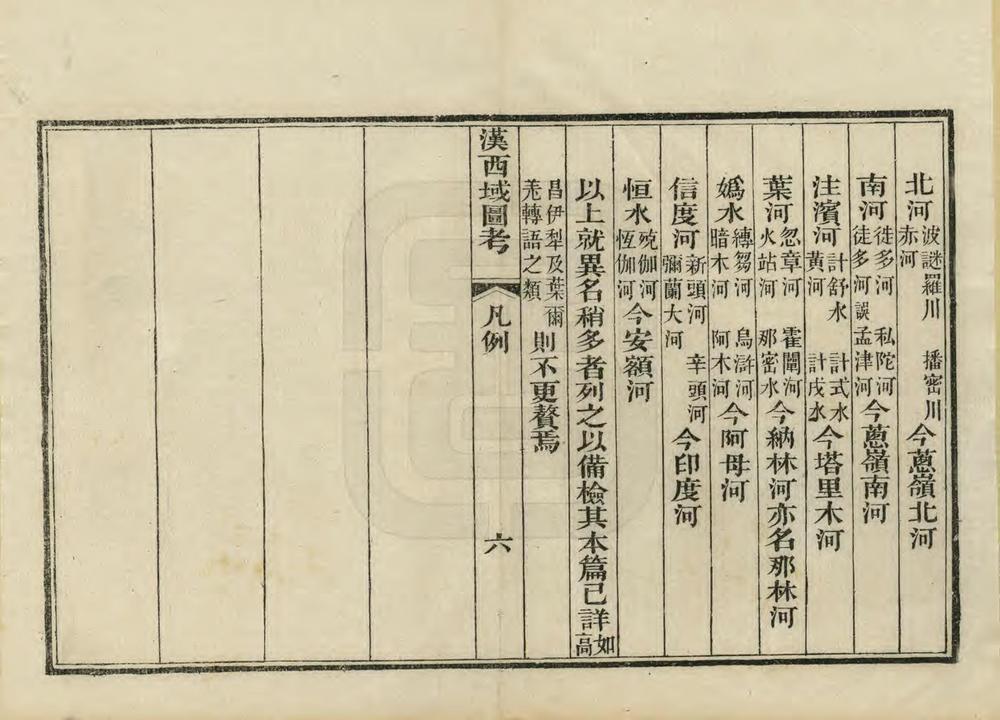 北河波謎羅川　播密川赤河今蔥嶺北河
南河徙多河　私陀河徒多河誤孟津河今蔥嶺南河
注濱河計舒水　計式水黄河　計戍水今塔里木河
葉河忽章河　霍闡河火站河　那密水今納林河亦名那林河
嬀水縛芻河　烏滸河暗木河　阿木河今阿母河
信度河新頭河　辛頭河彌蘭大河今印度河
恒水殑伽河恆伽河今安額河
以上就異名稍多者列之以備檢其本篇已詳如高
昌伊犁及葉爾羌轉語之類則不更贅焉
漢西域圖考　凡例　六